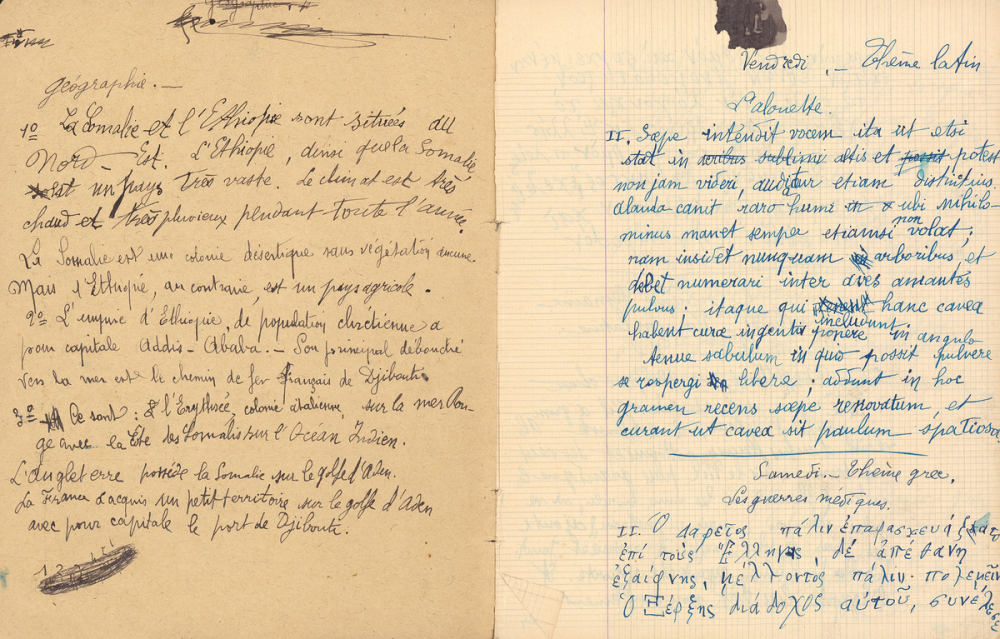 géographie. —
1º La Somalie et l'Ethiopie sont situées au
Nord-Est. L'Ethiopie, ainsi que la Somalie,
est un pays très vaste. Le climat est très
chaud et très pluvieux pendant toute l'année.
La Somalie est une colonie désertique sans végétation aucune.
Mais l'Ethiopie, au contraire, est un pays agricole.
2º L'empire d'Ethiopie, de population chrétienne a
pour capitale Addis-Ababa. — Son principal débouché
vers la mer est le chemin de fer français de Djibouti.
3º Ce sont : l'Erythrée, colonie italienne, sur la mer Rou-
ge avec la Côte des Somalis sur l'Océan Indien.
L'angleterre possède la Somalie sur le golfe d'Aden.
La France a acquis un petit territoire sur le golfe d'Aden
avec pour capitale le port de Djibouti.
Vendredi. — Thème latin
L'alouette.
II. Sæpe intendit vocem ita ut etsi
stat in sublimi ætis et potest
non jam videri, auditur etiam distinctius.
alauda canit raro humi ubi nihilo-
minus manet semper etiamsi non volat ;
nam insidet nunquam arboribus, et
debet numerari inter aves amantes
pulvus ; itaque qui hanc cavea
includunt,
habent curæ ingentis ponere in angulo
tenue sabulum in quo possit pulvere
se respergi libere ; addunt in hoc
gramen recens sæpe renovatum, et
curant ut cavea sit paulum spatiosa
Samedi. — Thème grec.
Les guerres médiques.
II. Ὁ Δαρεῖος πάλιν ἐπαρασκευάξατο
ἐπί τοὺς Ἕλληνας, δέ ἀπέθανη
ἐξαίφνης, μέλλοντὸς πάλιν πολεμεῖν
Ὁ Ξέρξης διάδοχος αὐτοῦ, συνέλεξε